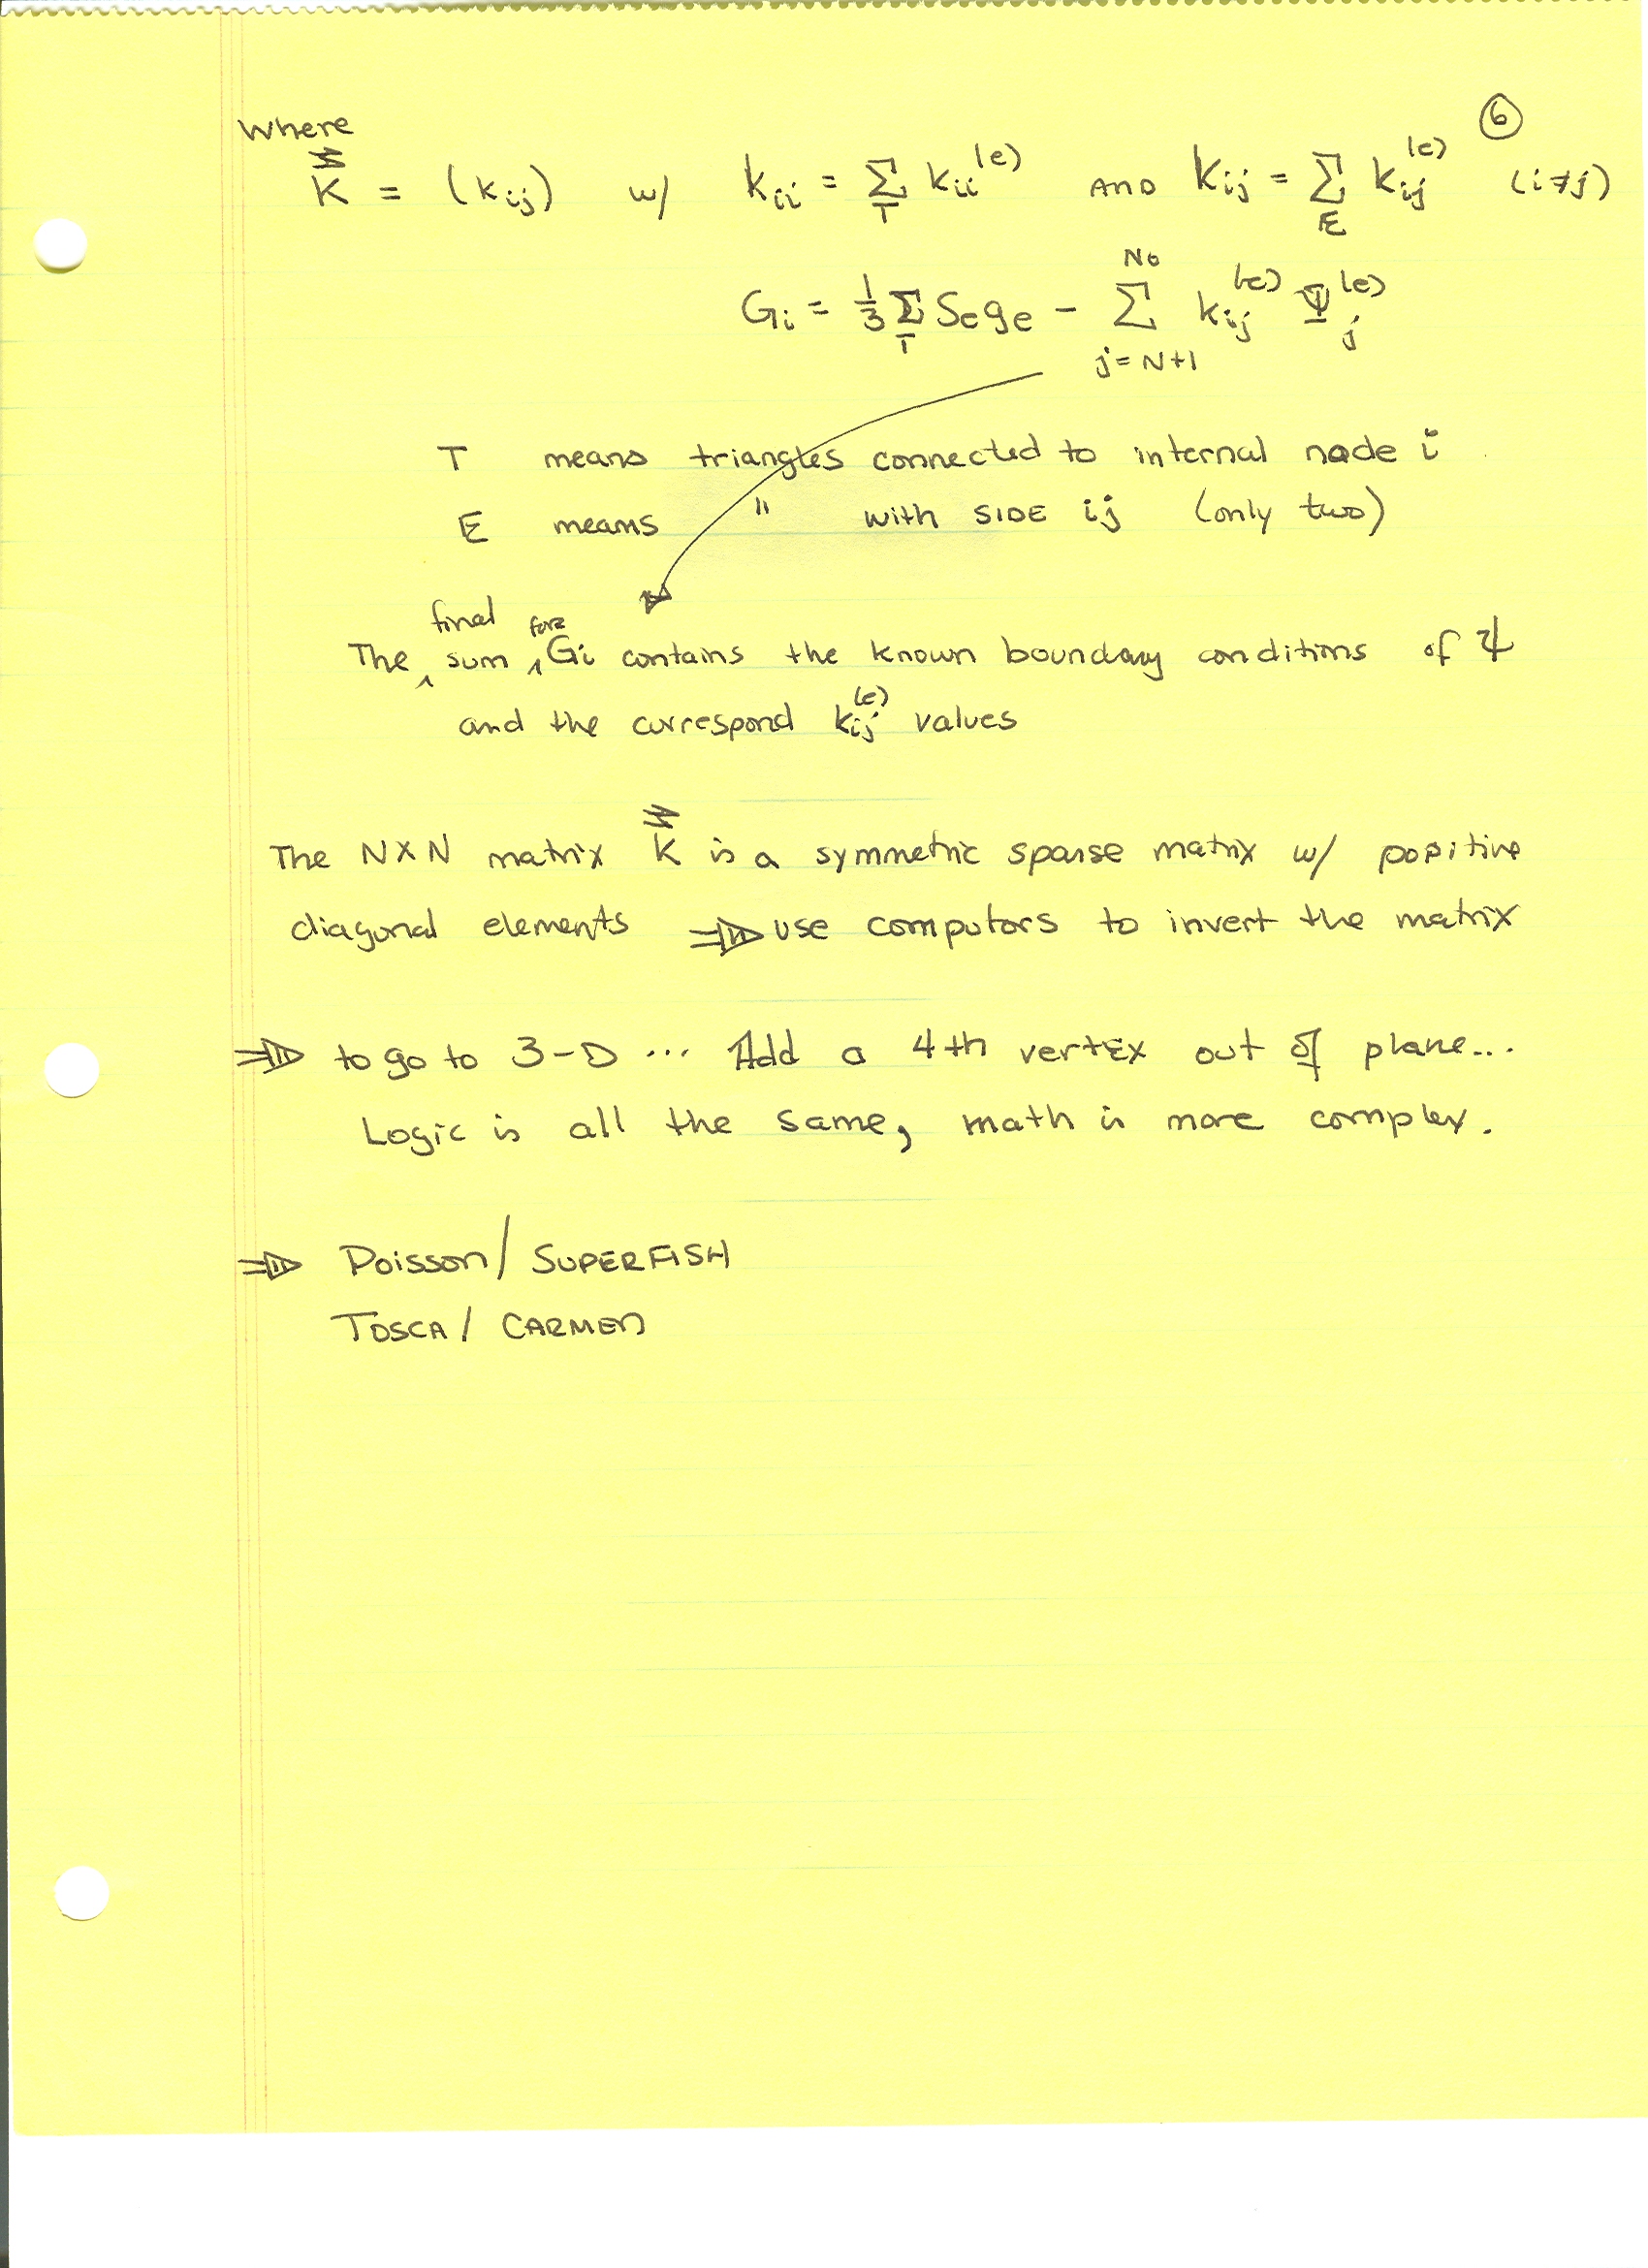 Where
⑥
K = (kij) w/ kii = Σ_T kii^(e) AND kij = Σ_E kij^(e) (i≠j)
Gi = 1/3 Σ_T Se ge - Σ_{j=N+1}^{No} kij^(e) Ψj^(e)
T means triangles connected to internal node i
E means " with SIDE ij (only two)
The final sum for Gi contains the known boundary conditions of ψ
and the correspond kij^(e) values
The NXN matrix K is a symmetric sparse matrix w/ positive
diagonal elements ⇒ use computors to invert the matrix
⇒ to go to 3-D ... Add a 4th vertex out of plane...
Logic is all the same, math is more complex.
⇒ Poisson/ SUPERFISH
TOSCA/ CARMEN